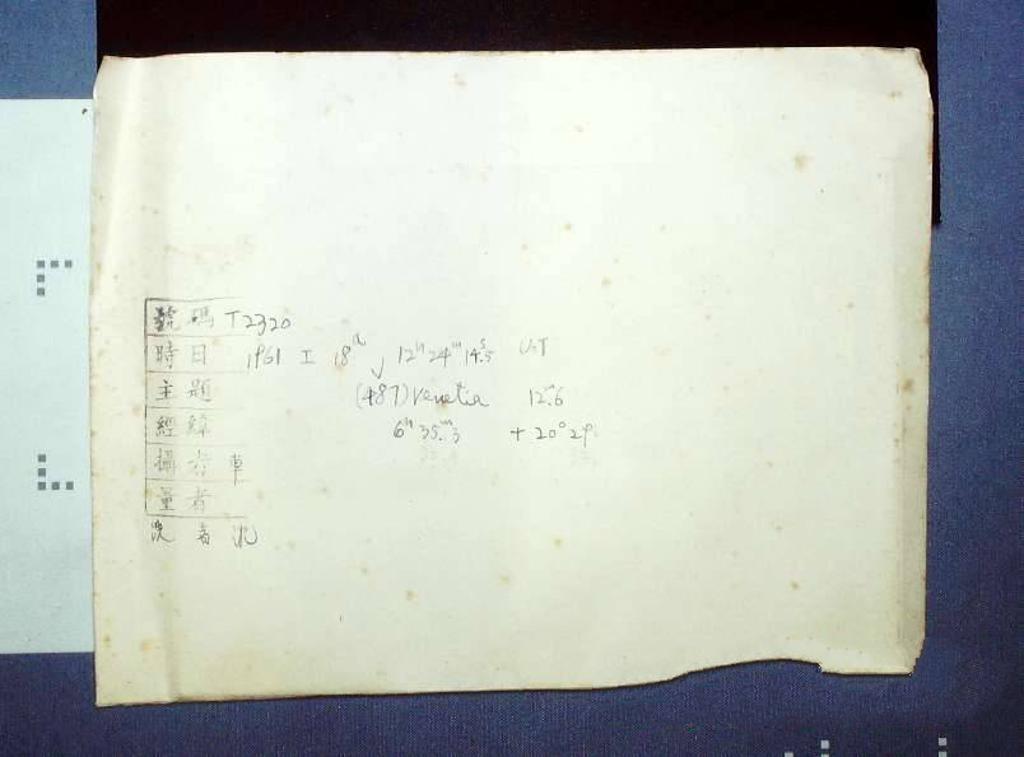 號碼 T2320
時日 1961 I 18th 12h 24m 14.5s U.T
主題 (487) Venetia 12m.6
經緯 6h 35m.3 + 20° 29'
攝者
量者
洗者 沈